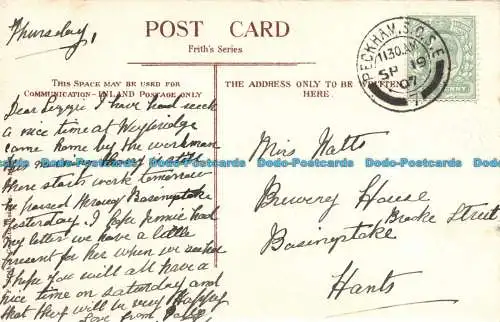 Thursday
POST CARD
Frith's Series
THIS SPACE MAY BE USED FOR
COMMUNICATION—INLAND POSTAGE ONLY
THE ADDRESS ONLY TO BE
WRITTEN HERE.
PECKHAM. S.O. S.E.
11.30 AM
SP 19
07
Dear Lizzie I have had such
a nice time at Weybridge
came home by the workman
this
there starts work tomorrow
he passed through Basingstoke
yesterday. I hope Jennie had
my letter we have a little
present for her when we
I hope you will all have a
nice time on Saturday and
that they will be very Happy
Love from
Mrs Watts
Brewery House
Brooke Street
Basingstoke
Hants
Dodo-Postcards Dodo-Postcards Dodo-Postcards Dodo-Postcards